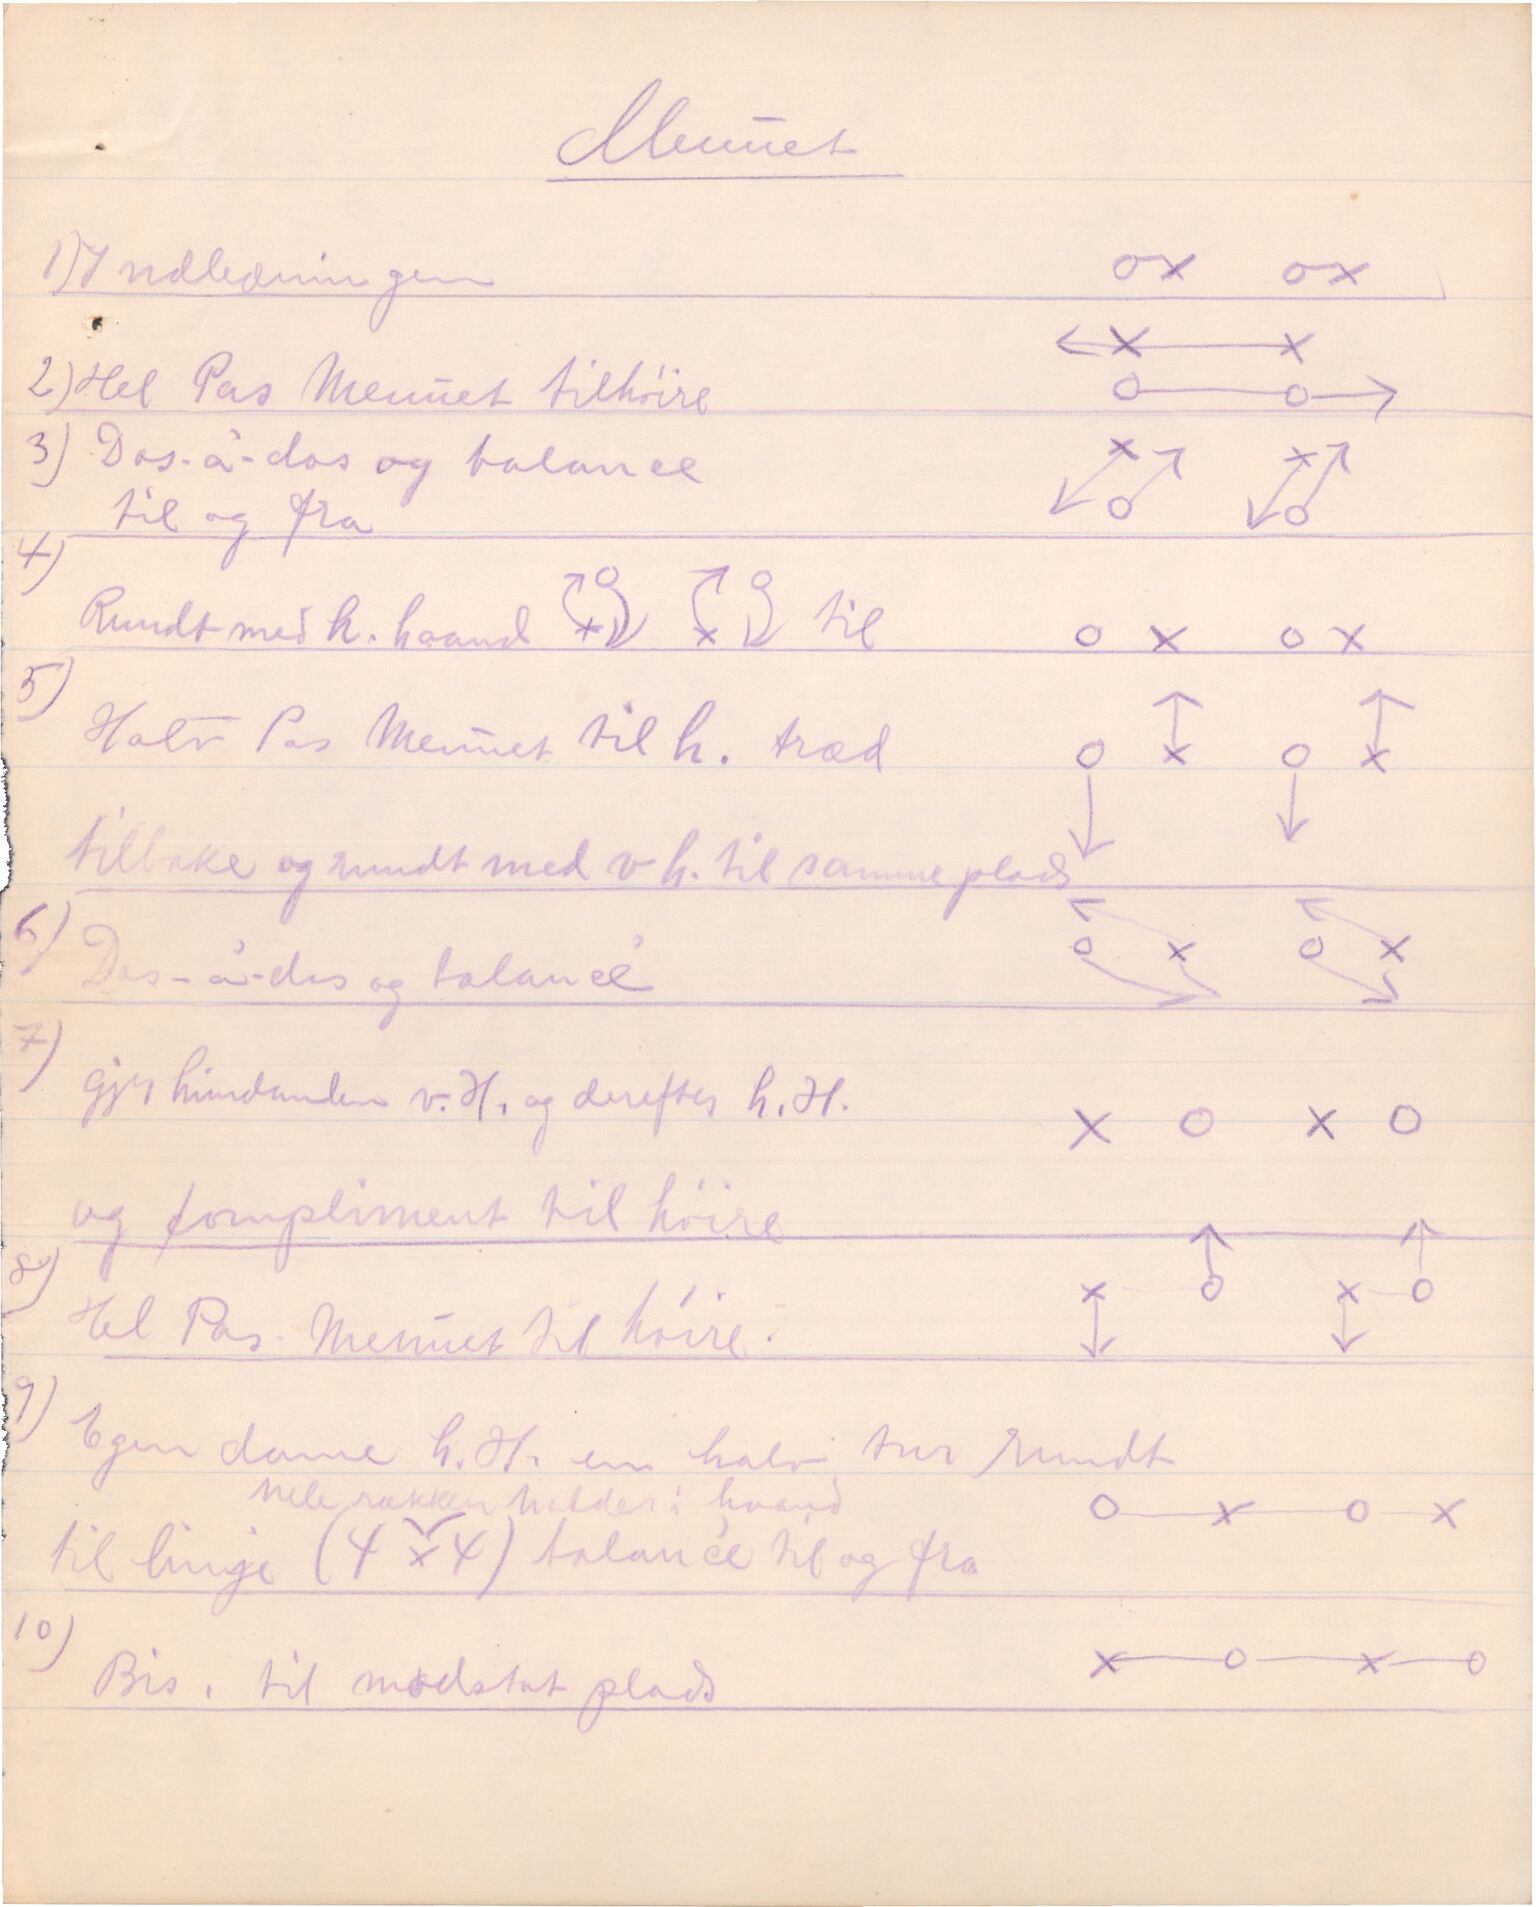 Menuet
1) Indledningen
2) Hel Pas Menuet til høire
3) Dos-à-dos og balance
til og fra
4)
Rundt med h. haand til
5)
Halv Pas Menuet til h. træd
tilbake og rundt med v h. til samme plads
6)
Dos-à-dos og balancé
7)
gjr hinanden v. H. og derefter h. H.
og kompliment til høire
8)
Hel Pas Menuet til høire.
9)
Egen dame h. H. en halv tur rundt
hele rækken holder i haand
til linje (4 x 4) balancé til og fra
10)
Bis. til modsat plads